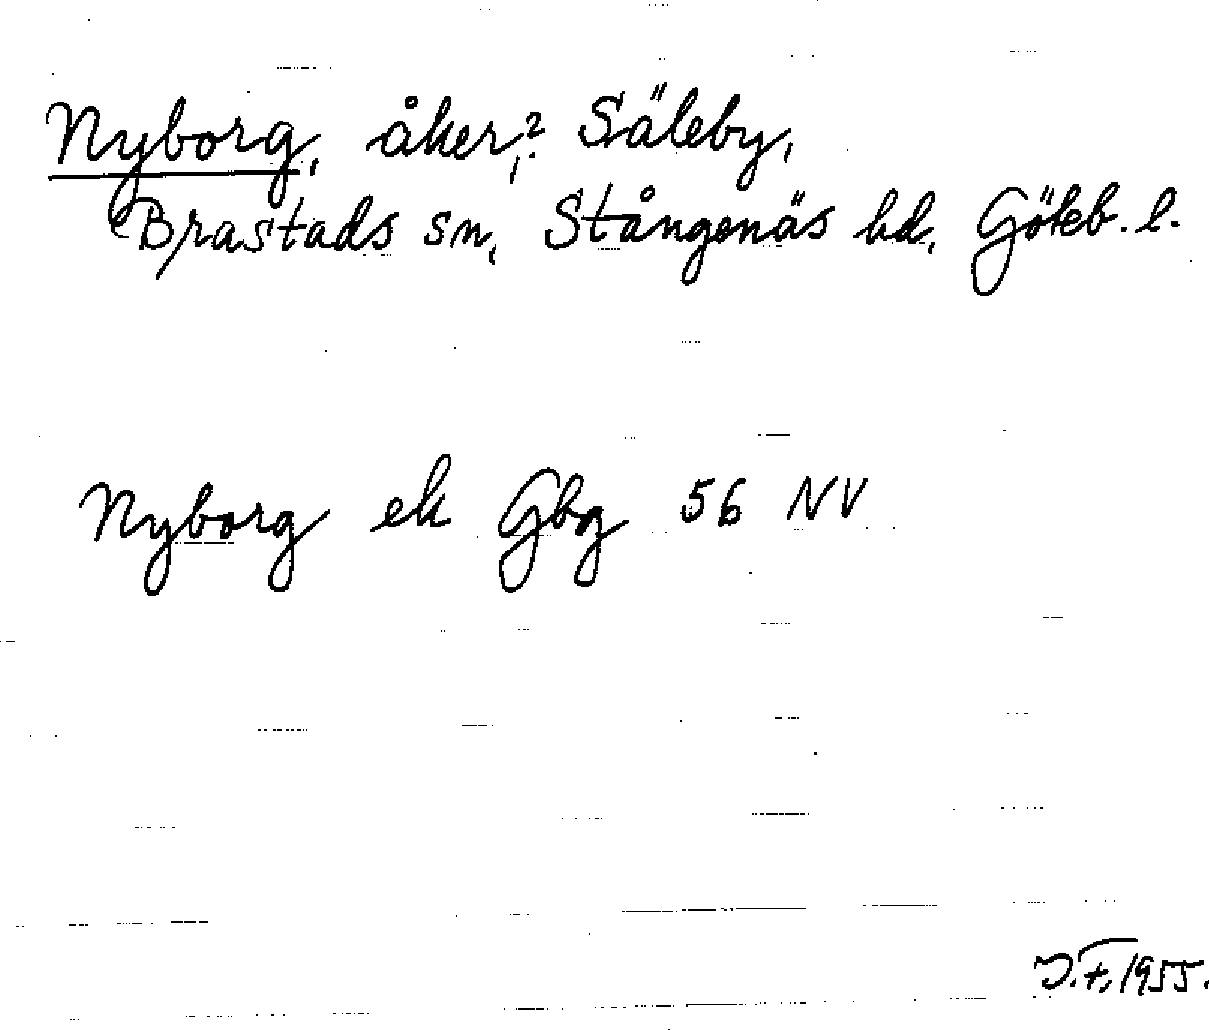 Nyborg, åker,? Säleby,
Brastads sn, Stångenäs hd, Göteb. l.
Nyborg ek Gbg 56 NV
J.F. 1955.